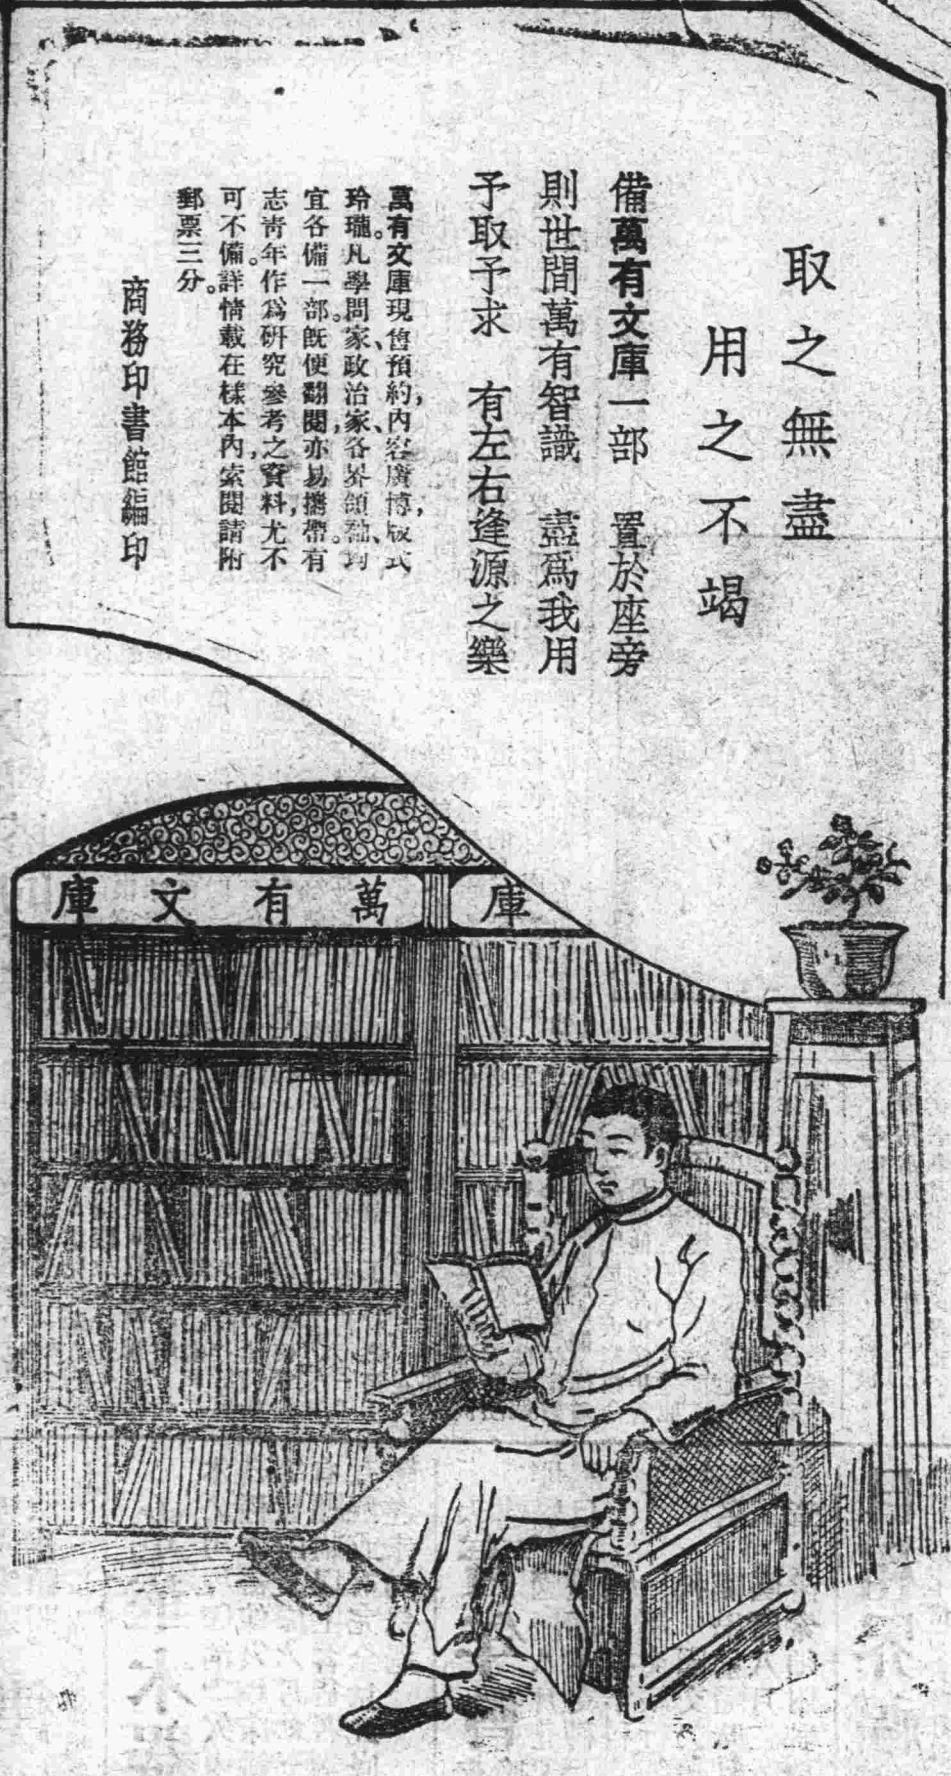 取之無盡
用之不竭
備萬有文庫一部　置於座旁
則世間萬有智識　盡爲我用
予取予求　有左右逢源之樂
萬有文庫現售預約，內容廣博，版式
玲瓏。凡學問家、政治家、各界領袖、均
宜各備一部。既便翻閱，亦易攜帶。有
志靑年作爲研究參考之資料，尤不
可不備。詳情載在樣本內，索閱請附
郵票三分。
商務印書館編印
萬有文庫
庫